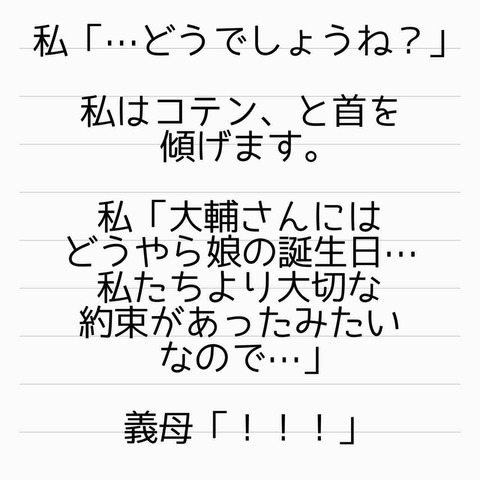 私「…どうでしょうね？」
私はコテン、と首を
傾げます。
私「大輔さんには
どうやら娘の誕生日…
私たちより大切な
約束があったみたい
なので…」
義母「！！！」